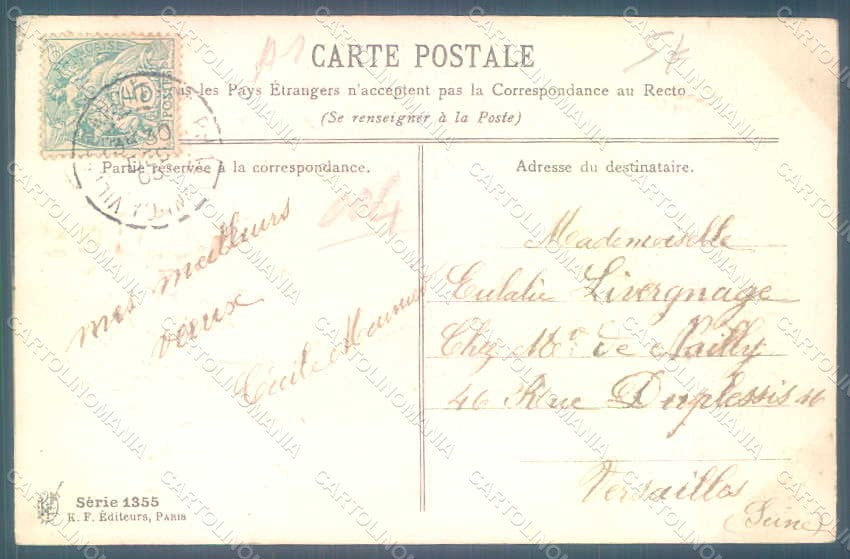 CARTE POSTALE
les Pays Étrangers n'acceptent pas la Correspondance au Recto
(Se renseigner à la Poste)
Partie réservée à la correspondance.
mes meilleurs
vœux
Cécile
Adresse du destinataire.
Mademoiselle
Eulalie Livergnage
Chez Mr de Nailly
46 Rue Duplessis 46
Versailles
(Seine)
Série 1355
K. F. Éditeurs, PARIS
CARTOLINOMANIA